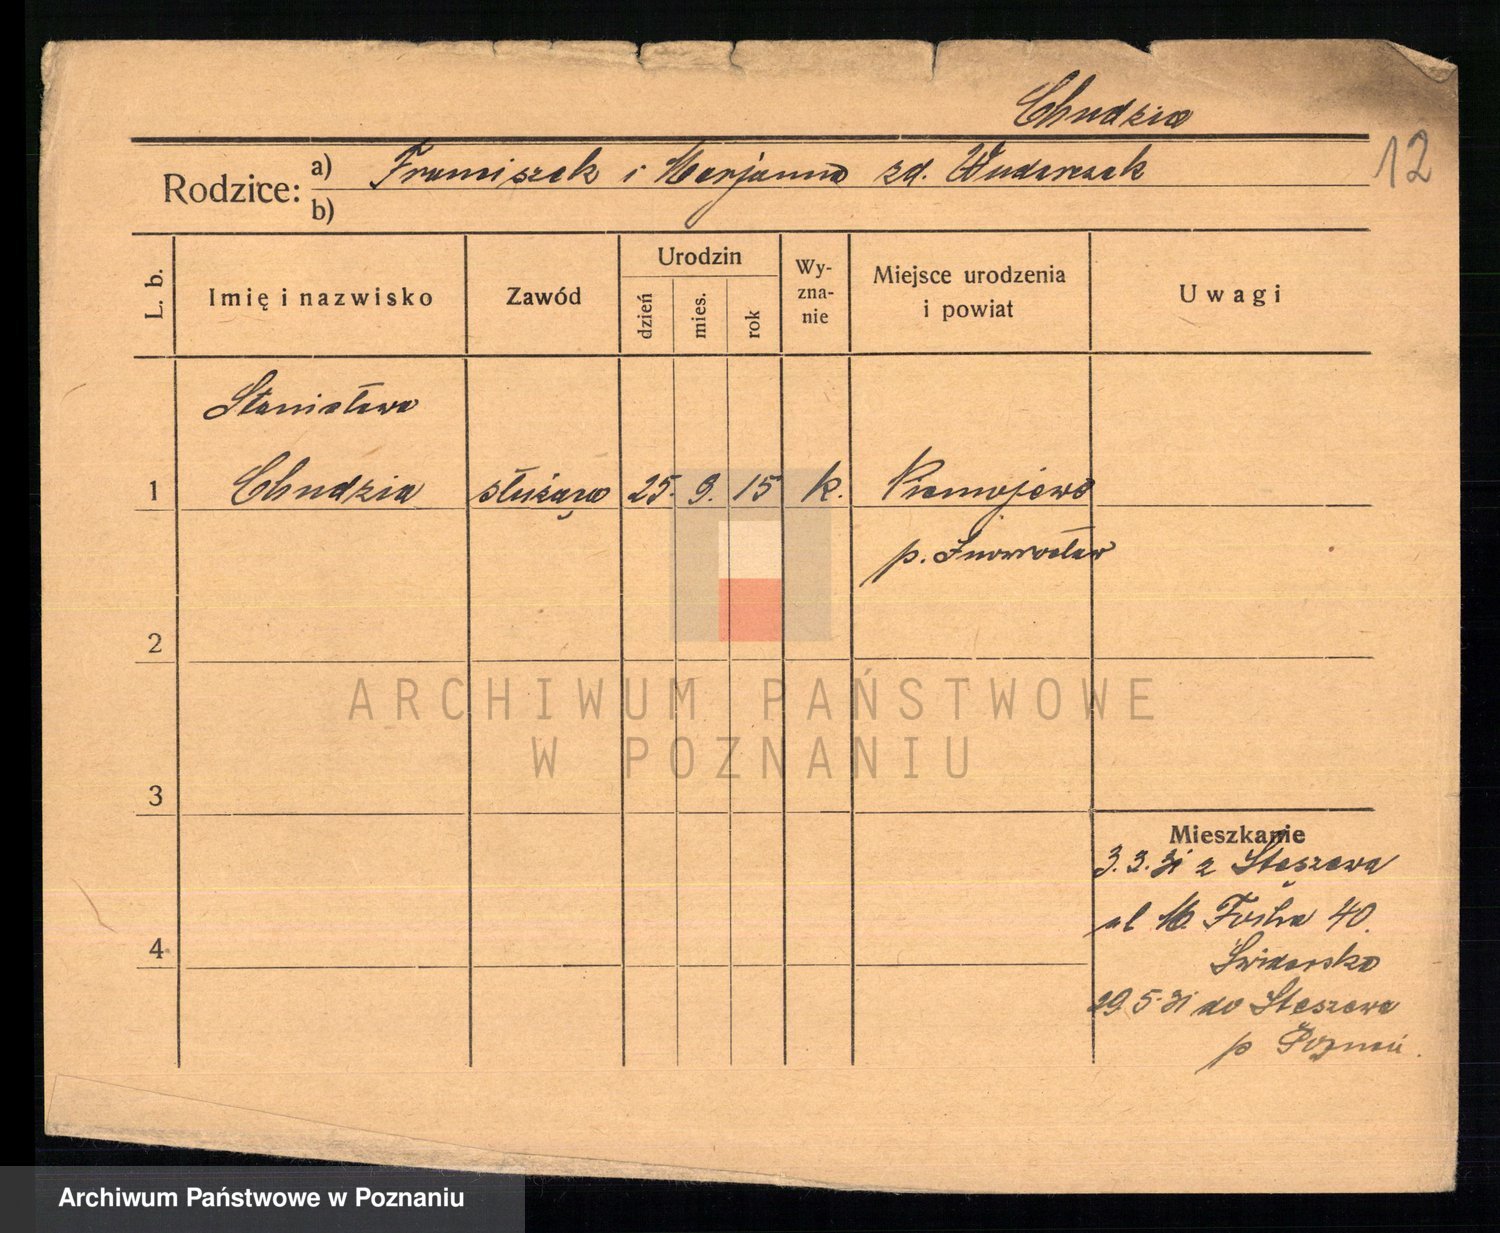 Chudzia
12
Rodzice: a) Franciszek i Marjanna zd. Wudarczak
b)
L. b.
Imię i nazwisko
Zawód
Urodzin
dzień
mies.
rok
Wy-
zna-
nie
Miejsce urodzenia
i powiat
Uwagi
Stanisława
1 Chudzia służąca 25. 9. 15 k.
p. Inowrocław
2
3
4
Mieszkanie
3.3.31 z Stęszewa
ul M. Focha 40.
Świderska
29.5.31 do Stęszewa
p Poznań.
ARCHIWUM PAŃSTWOWE
W POZNANIU
Archiwum Państwowe w Poznaniu